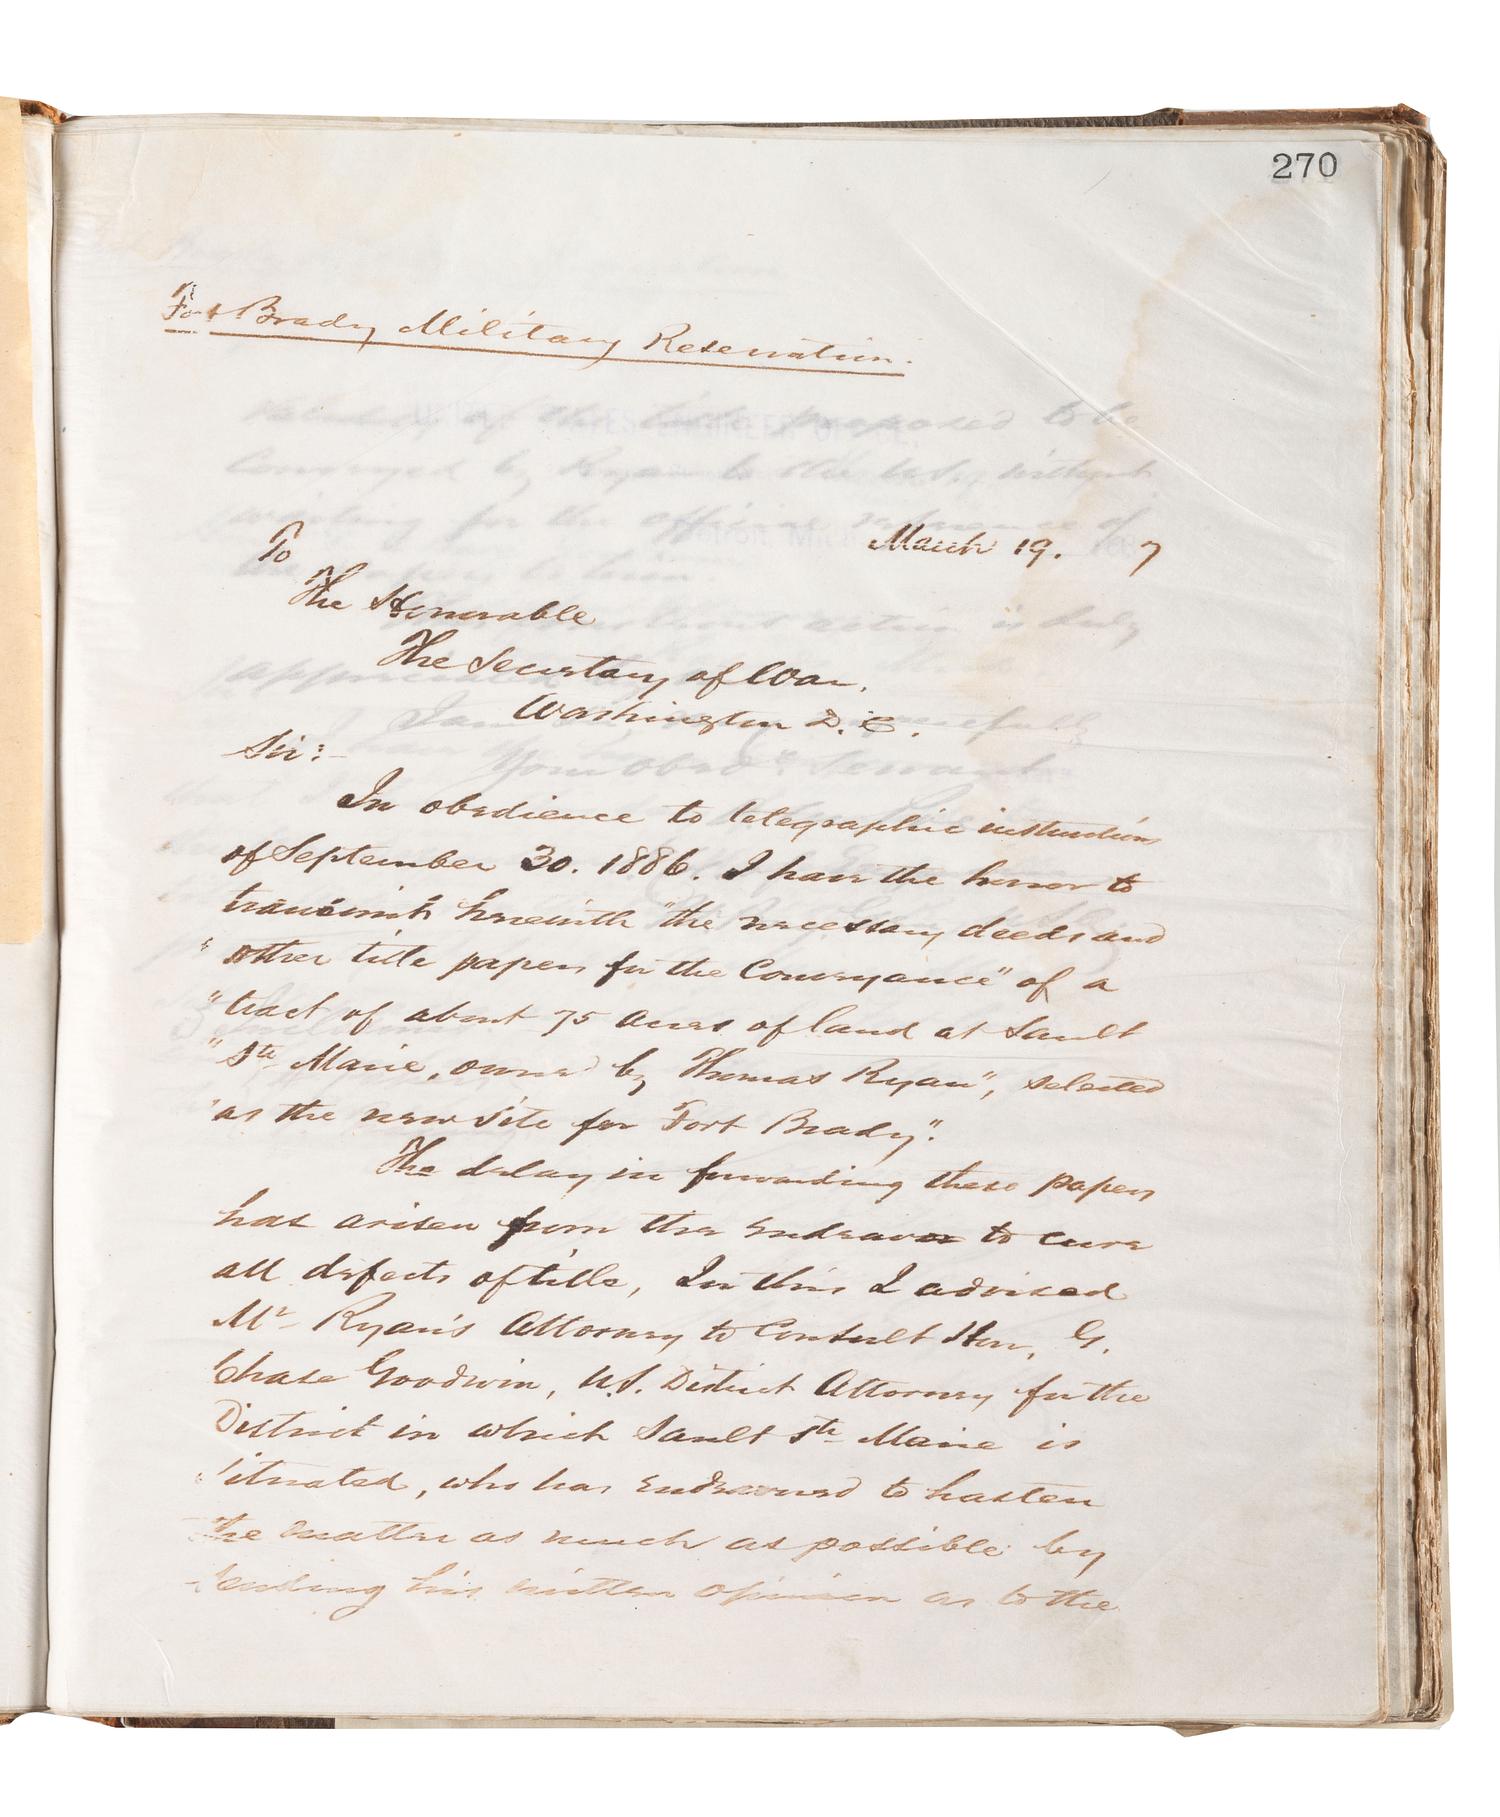 270
Fort Brady Military Reservation.
March 19. 7
To
The Honorable
The Secretary of War.
Washington D. C.
Sir:-
In obedience to telegraphic instruction
of September 30. 1886. I have the honor to
transmit herewith "the necessary deeds and
"other title papers for the Conveyance" of a
"tract of about 75 acres of land at Sault
"Ste Marie, owned by Thomas Ryan", selected
"as the new site for Fort Brady".
The delay in forwarding these papers
has arisen from the endeavor to cure
all defects of title, In this I advised
Mr Ryan's Attorney to Consult Hon. G.
Chase Goodwin, U.S. District Attorney for the
District in which Sault Ste Marie is
situated, who has endeavored to hasten
the matter as much as possible by
sending his written opinion as to the